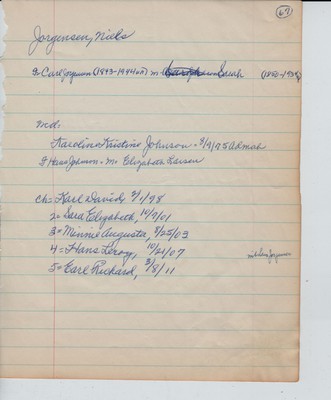 67
Jorgensen, Niels
g. Carl Jorgensen (1843-1944) m. Sarah (1850-1938)
md:
Karoline Kristine Johnson - 8/9/75 Akmah
f Hans Johnson - m Elizabeth Larsen
ch = Karl David, 2/1/98
2 = Sara Elizabeth, 10/7/01
3 = Minnie Augusta, 8/25/03
4 = Hans Leroy, 10/21/07
5 = Earl Richard, 3/8/11